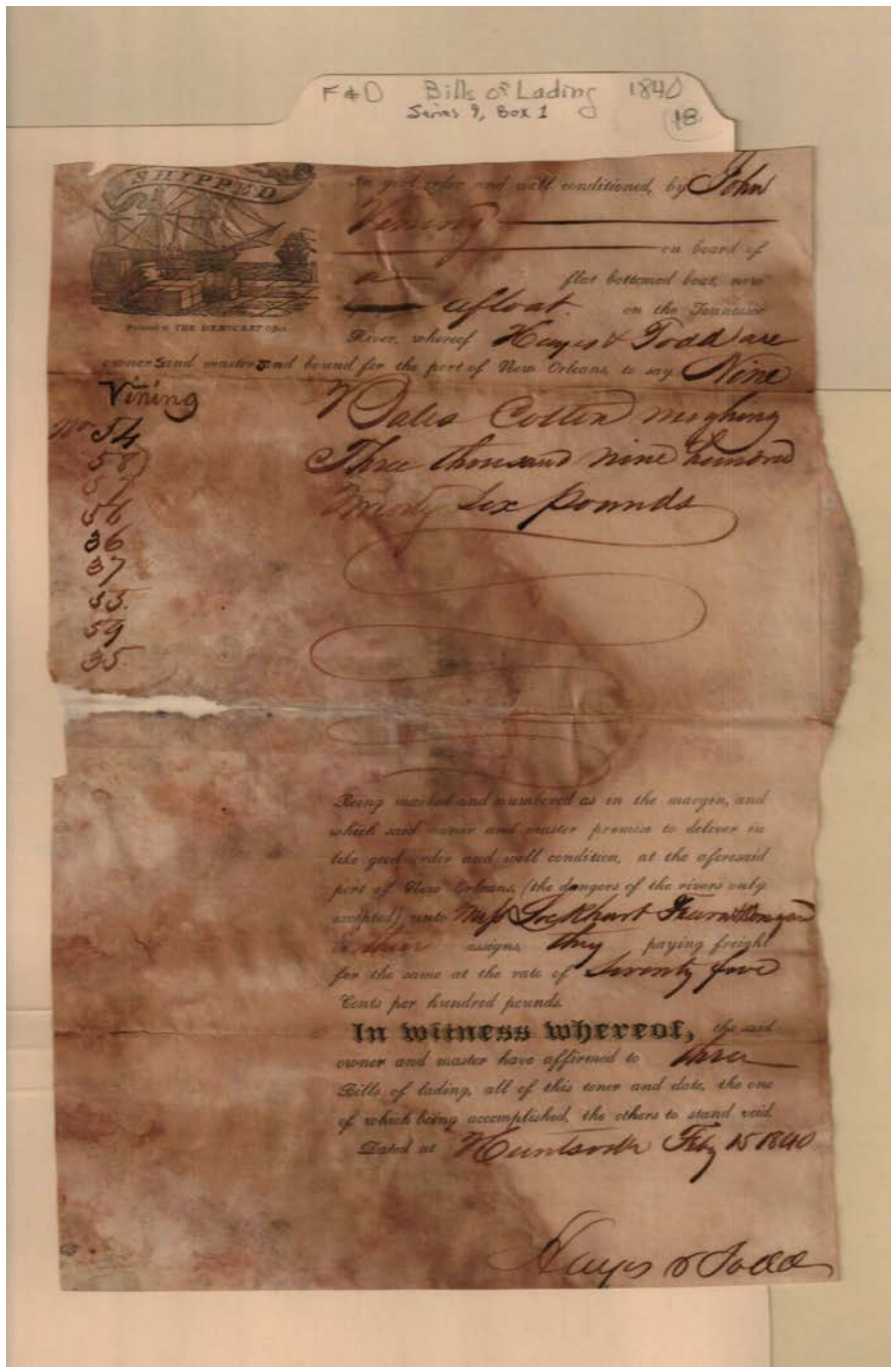 F & D Bills of Lading 1840
Series 9, Box 1
18
SHIPPED
In good order and well conditioned, by John
Vining
on board of
a flat bottomed boat, now
afloat on the Tennessee
River, whereof Hayes & Todd are
owners and masters and bound for the port of New Orleans, to say Nine
Printed at THE DEMOCRAT Office
Vining
Nos 54
58
57
56
36
37
33
59
35
Bales Cotton weighing
Three thousand nine hundred
Ninety Six pounds
Being marked and numbered as in the margin, and
which said owner and master promise to deliver in
like good order and well condition, at the aforesaid
port of New Orleans, (the dangers of the rivers only
excepted) unto Lockhart Fearn &
or their assigns, they paying freight
for the same at the rate of Seventy five
Cents per hundred pounds.
In witness whereof, the said
owner and master have affirmed to three
Bills of lading, all of this tener and date, the one
of which being accomplished, the others to stand void.
Dated at Huntsville Feby 15 1840
Hayes & Todd